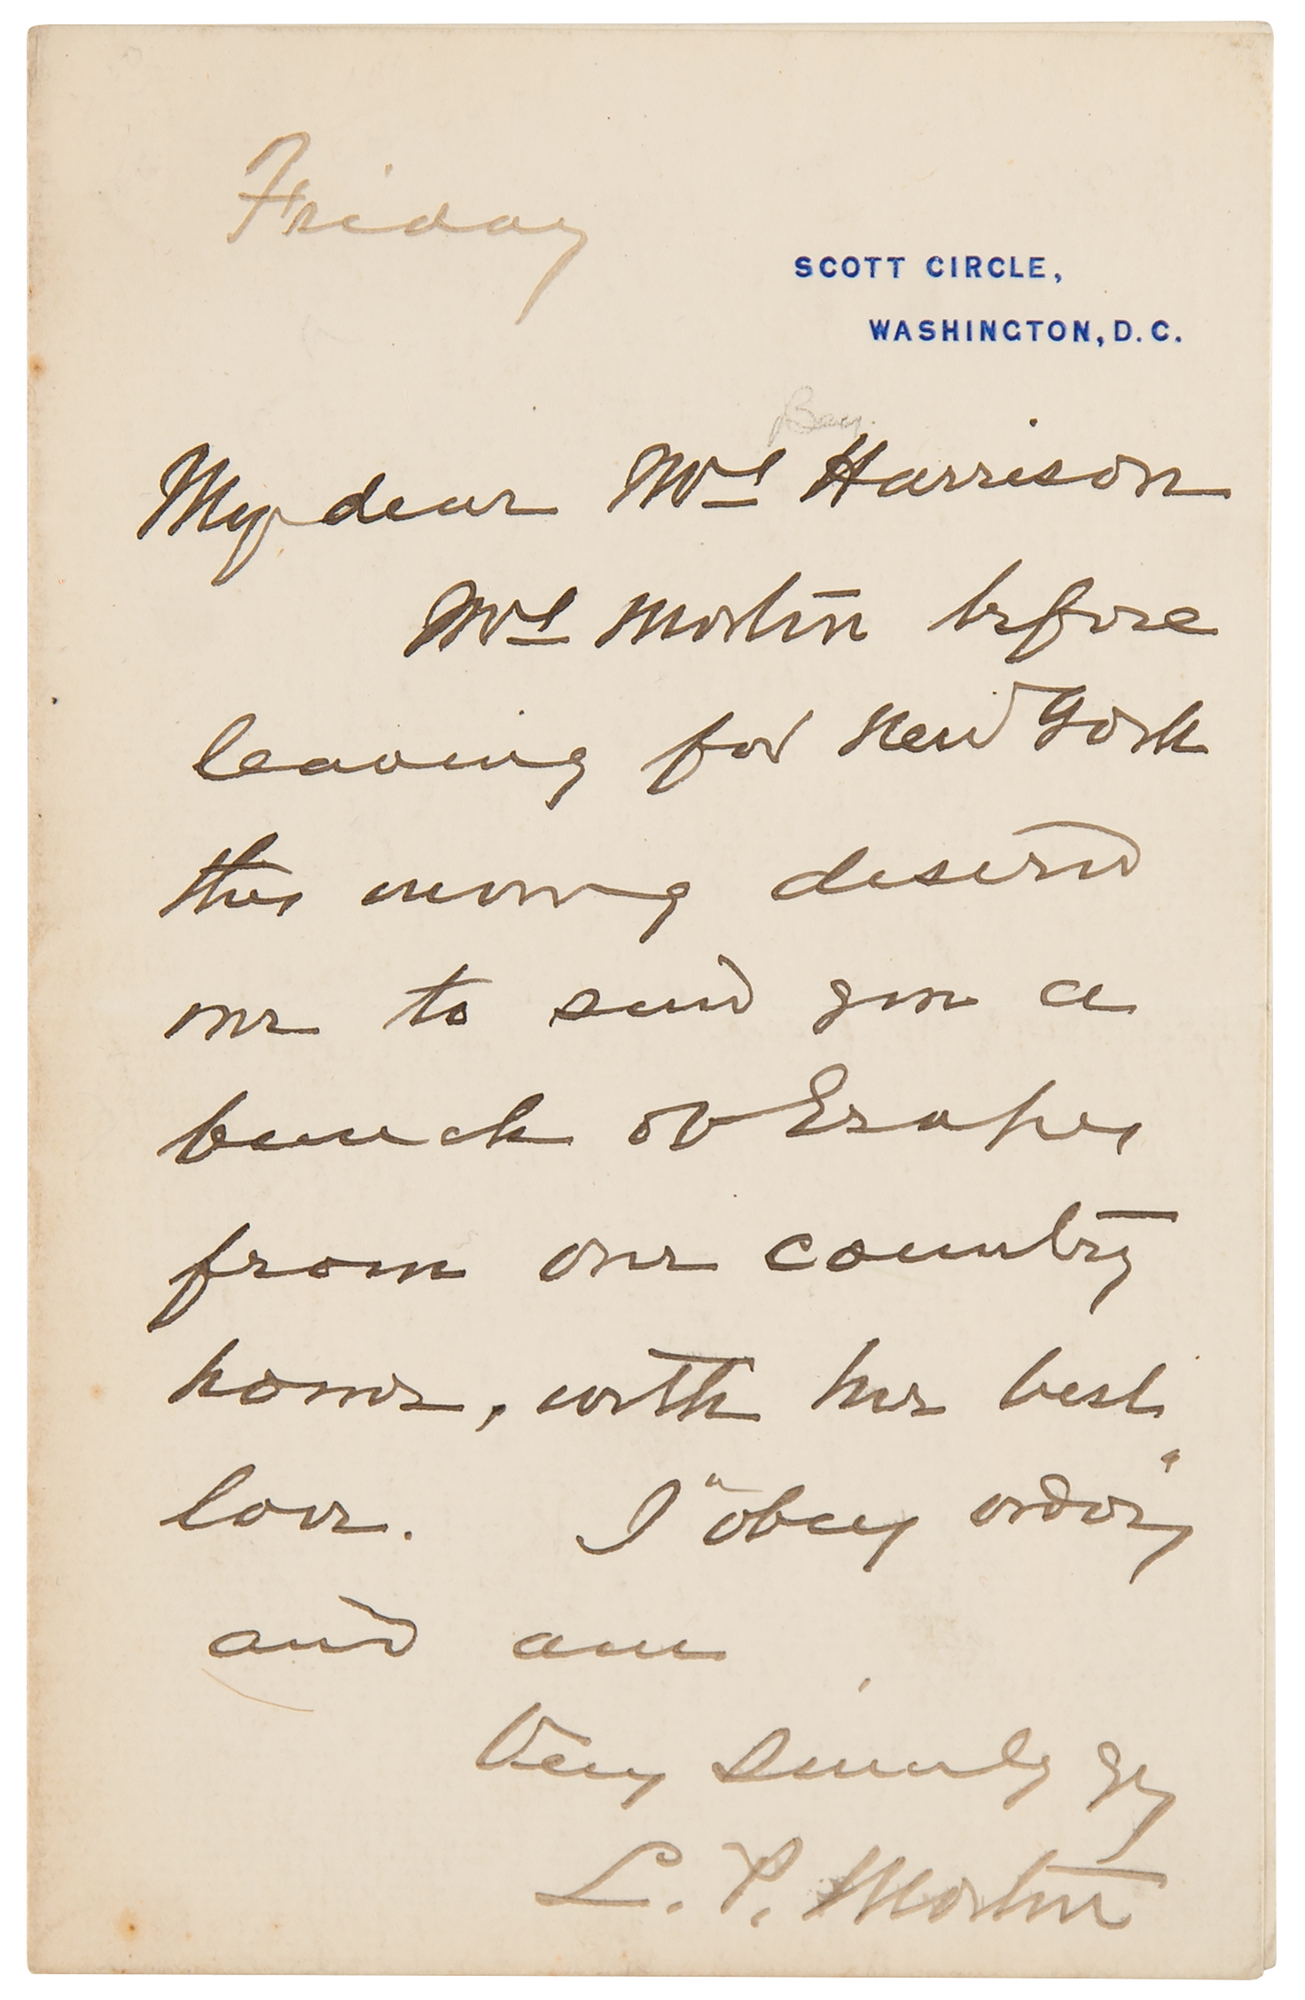 Friday
SCOTT CIRCLE,
WASHINGTON, D.C.
Benj.
My dear Mrs Harrison
Mrs Morton before
leaving for New York
this morning desired
me to send you a
bunch of Grapes
from our country
home, with her best
love. I "obey orders"
and am
Very sincerely yrs
L. P. Morton